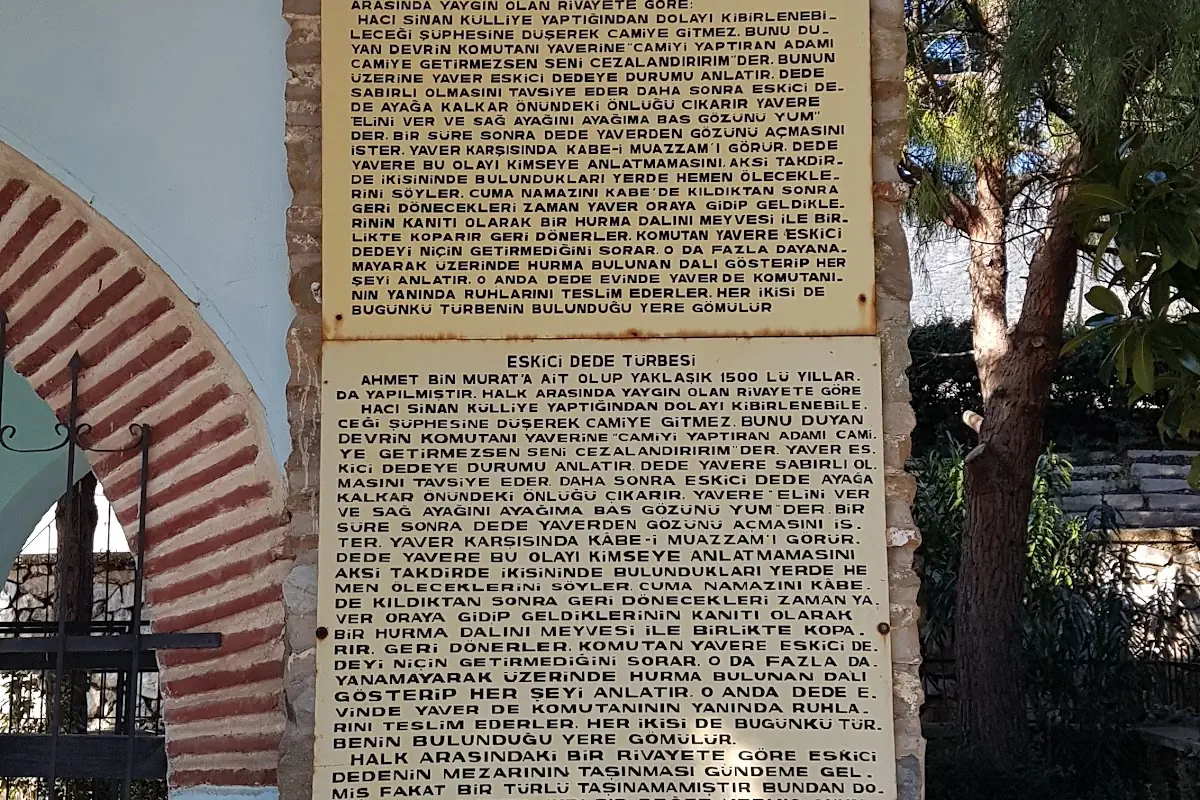 ARASINDA YAYGIN OLAN RİVAYETE GÖRE:
HACI SİNAN KÜLLİYE YAPTIĞINDAN DOLAYI KİBİRLENEBİ-
LECEĞİ ŞÜPHESİNE DÜŞEREK CAMİYE GİTMEZ. BUNU DU-
YAN DEVRİN KOMUTANI YAVERİNE "CAMİYİ YAPTIRAN ADAMI
CAMİYE GETİRMEZSEN SENİ CEZALANDIRIRIM" DER. BUNUN
ÜZERİNE YAVER ESKİCİ DEDEYE DURUMU ANLATIR. DEDE
SABIRLI OLMASINI TAVSİYE EDER DAHA SONRA ESKİCİ DE-
DE AYAĞA KALKAR ÖNÜNDEKİ ÖNLÜĞÜ ÇIKARIR YAVERE
"ELİNİ VER VE SAĞ AYAĞINI AYAĞIMA BAS GÖZÜNÜ YUM"
DER. BİR SÜRE SONRA DEDE YAVERDEN GÖZÜNÜ AÇMASINI
İSTER. YAVER KARŞISINDA KABE-İ MUAZZAM'I GÖRÜR. DEDE
YAVERE BU OLAYI KİMSEYE ANLATMAMASINI, AKSİ TAKDİR-
DE İKİSİNİNDE BULUNDUKLARI YERDE HEMEN ÖLECEKLE-
RİNİ SÖYLER. CUMA NAMAZINI KABE'DE KILDIKTAN SONRA
GERİ DÖNECEKLERİ ZAMAN YAVER ORAYA GİDİP GELDİKLE-
RİNİN KANITI OLARAK BİR HURMA DALINI MEYVESİ İLE BİR-
LİKTE KOPARIR GERİ DÖNERLER. KOMUTAN YAVERE ESKİCİ
DEDEYİ NİÇİN GETİRMEDİĞİNİ SORAR. O DA FAZLA DAYANA-
MAYARAK ÜZERİNDE HURMA BULUNAN DALI GÖSTERİP HER
ŞEYİ ANLATIR. O ANDA DEDE EVİNDE YAVER DE KOMUTANI-
NIN YANINDA RUHLARINI TESLİM EDERLER. HER İKİSİ DE
BUGÜNKÜ TÜRBENİN BULUNDUĞU YERE GÖMÜLÜR
ESKİCİ DEDE TÜRBESİ
AHMET BİN MURAT'A AİT OLUP YAKLAŞIK 1500 LÜ YILLAR.
DA YAPILMIŞTIR. HALK ARASINDA YAYGIN OLAN RİVAYETE GÖRE
HACI SİNAN KÜLLİYE YAPTIĞINDAN DOLAYI KİBİRLENEBİLE.
CEĞİ ŞÜPHESİNE DÜŞEREK CAMİYE GİTMEZ. BUNU DUYAN
DEVRİN KOMUTANI YAVERİNE "CAMİYİ YAPTIRAN ADAMI CAMİ.
YE GETİRMEZSEN SENİ CEZALANDIRIRIM" DER. YAVER ES.
KİCİ DEDEYE DURUMU ANLATIR. DEDE YAVERE SABIRLI OL.
MASINI TAVSİYE EDER. DAHA SONRA ESKİCİ DEDE AYAĞA
KALKAR ÖNÜNDEKİ ÖNLÜĞÜ ÇIKARIR. YAVERE "ELİNİ VER
VE SAĞ AYAĞINI AYAĞIMA BAS GÖZÜNÜ YUM" DER. BİR
SÜRE SONRA DEDE YAVERDEN GÖZÜNÜ AÇMASINI İS-
TER. YAVER KARŞISINDA KÂBE-İ MUAZZAM'I GÖRÜR.
DEDE YAVERE BU OLAYI KİMSEYE ANLATMAMASINI
AKSİ TAKDİRDE İKİSİNİNDE BULUNDUKLARI YERDE HE
MEN ÖLECEKLERİNİ SÖYLER. CUMA NAMAZINI KÂBE.
DE KILDIKTAN SONRA GERİ DÖNECEKLERİ ZAMAN YA.
VER ORAYA GİDİP GELDİKLERİNİN KANITI OLARAK
BİR HURMA DALINI MEYVESİ İLE BİRLİKTE KOPA.
RIR. GERİ DÖNERLER. KOMUTAN YAVERE ESKİCİ DE.
DEYİ NİÇİN GETİRMEDİĞİNİ SORAR. O DA FAZLA DA.
YANAMAYARAK ÜZERİNDE HURMA BULUNAN DALI
GÖSTERİP HER ŞEYİ ANLATIR. O ANDA DEDE E.
VİNDE YAVER DE KOMUTANININ YANINDA RUHLA.
RINI TESLİM EDERLER. HER İKİSİ DE BUGÜNKÜ TÜR.
BENİN BULUNDUĞU YERE GÖMÜLÜR.
HALK ARASINDAKİ BİR RİVAYETE GÖRE ESKİCİ
DEDENİN MEZARININ TAŞINMASI GÜNDEME GEL.
MİŞ FAKAT BİR TÜRLÜ TAŞINAMAMIŞTIR BUNDAN DO.